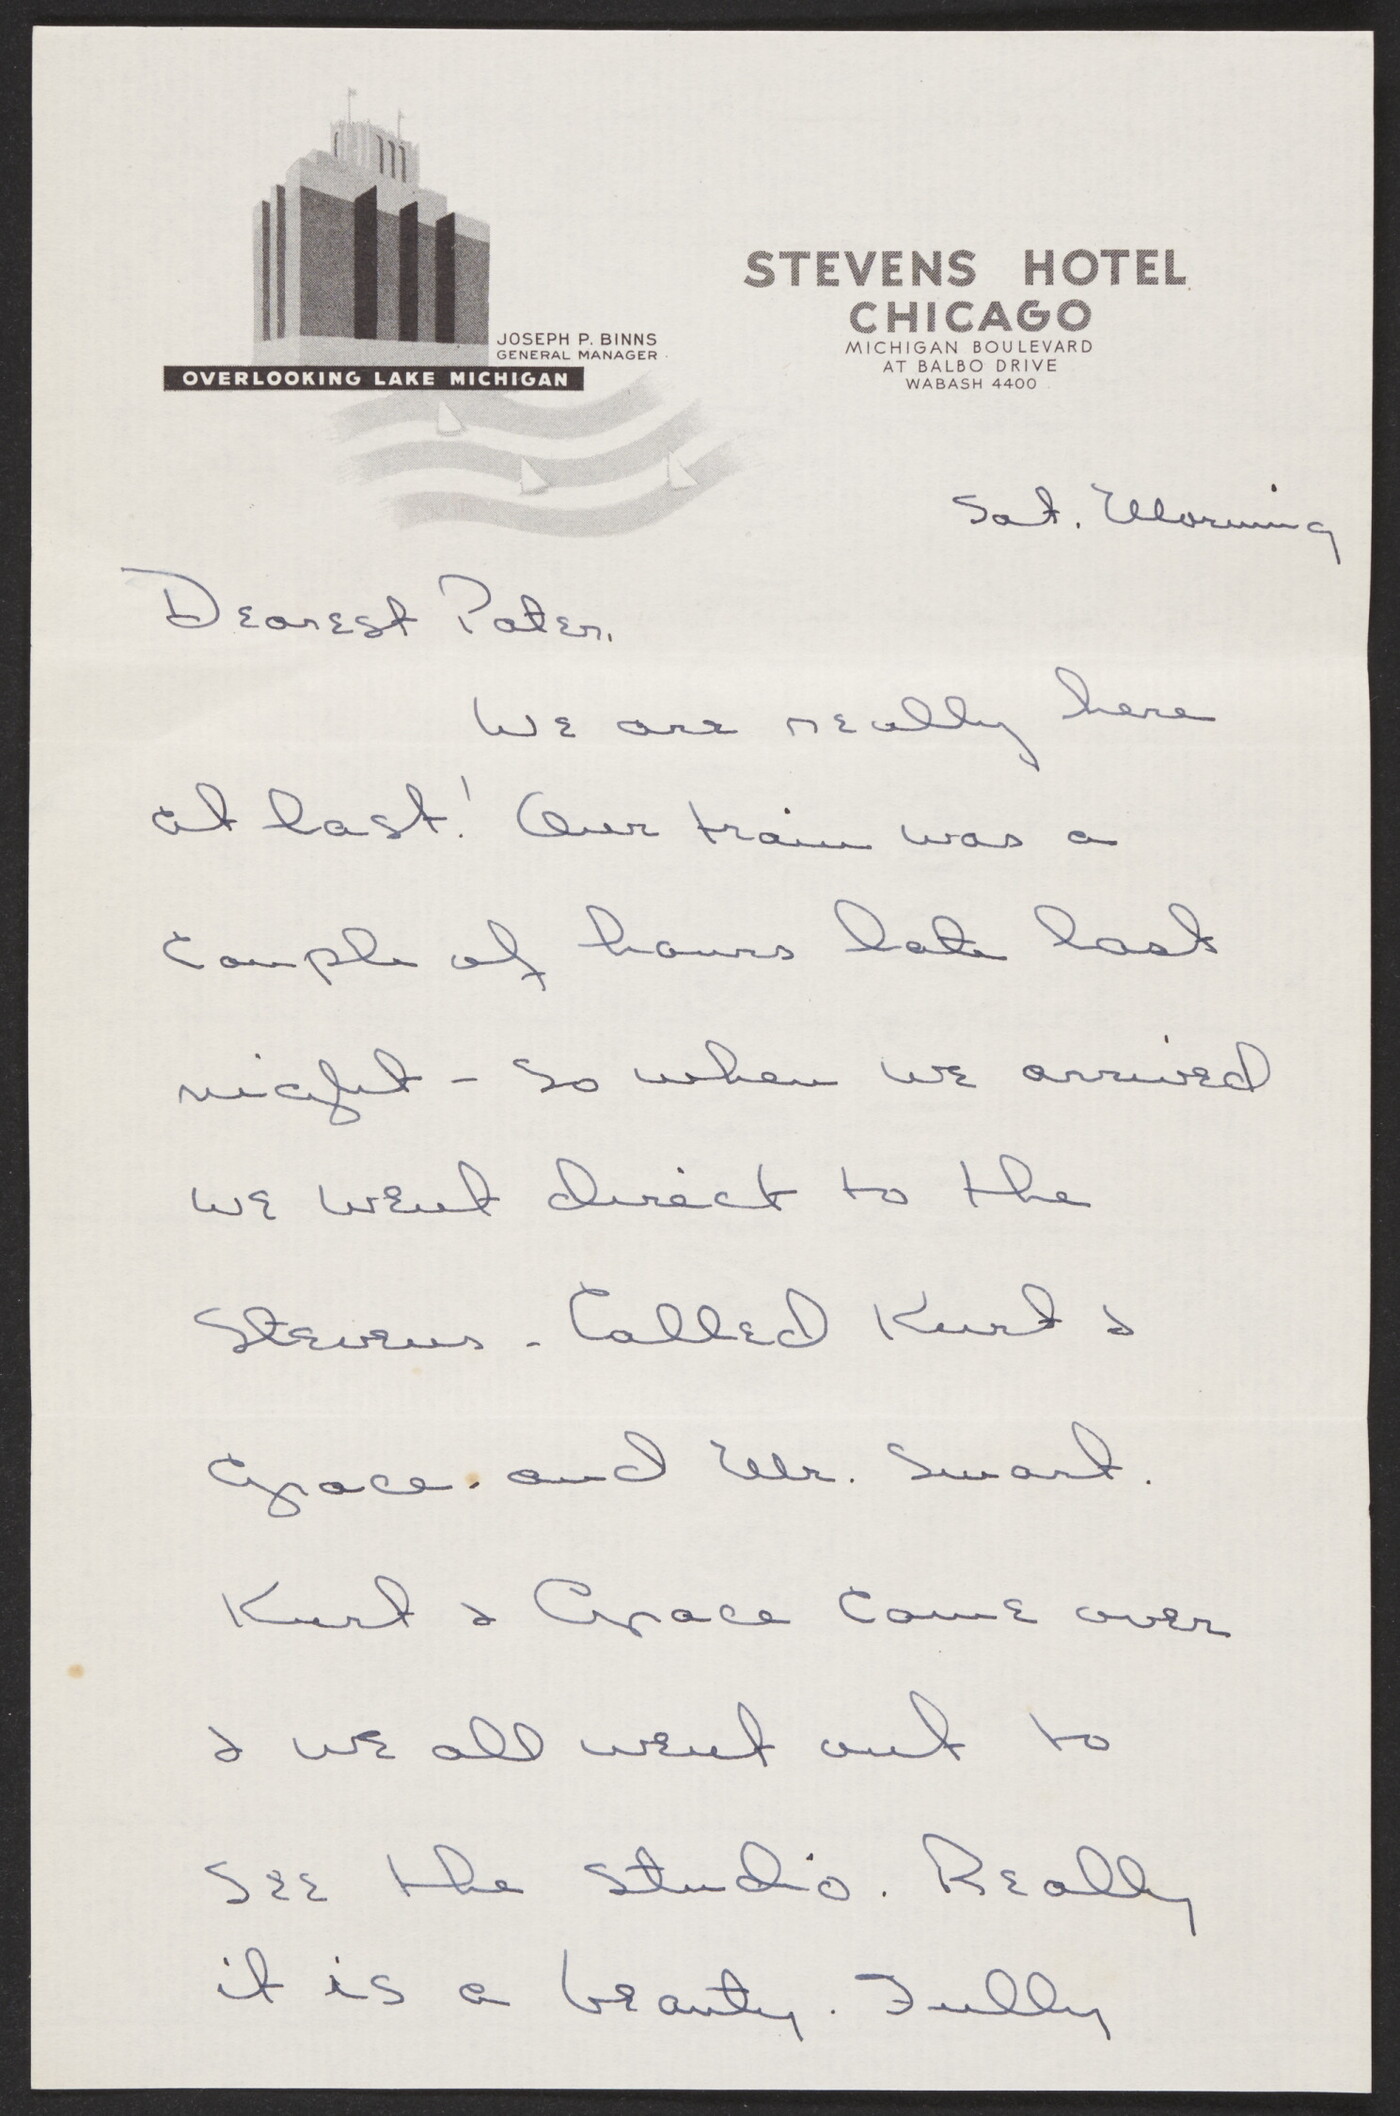 STEVENS HOTEL
CHICAGO
MICHIGAN BOULEVARD
AT BALBO DRIVE
WABASH 4400
JOSEPH P. BINNS
GENERAL MANAGER
OVERLOOKING LAKE MICHIGAN
Sat. Morning
Dearest Pater,
We are really here
at last! Our train was a
couple of hours late last
night - So when we arrived
we went direct to the
Stevens - Called Kurt &
Grace. and Mr. Swart.
Kurt & Grace came over
& we all went out to
see the studio. Really
it is a beauty. Fully